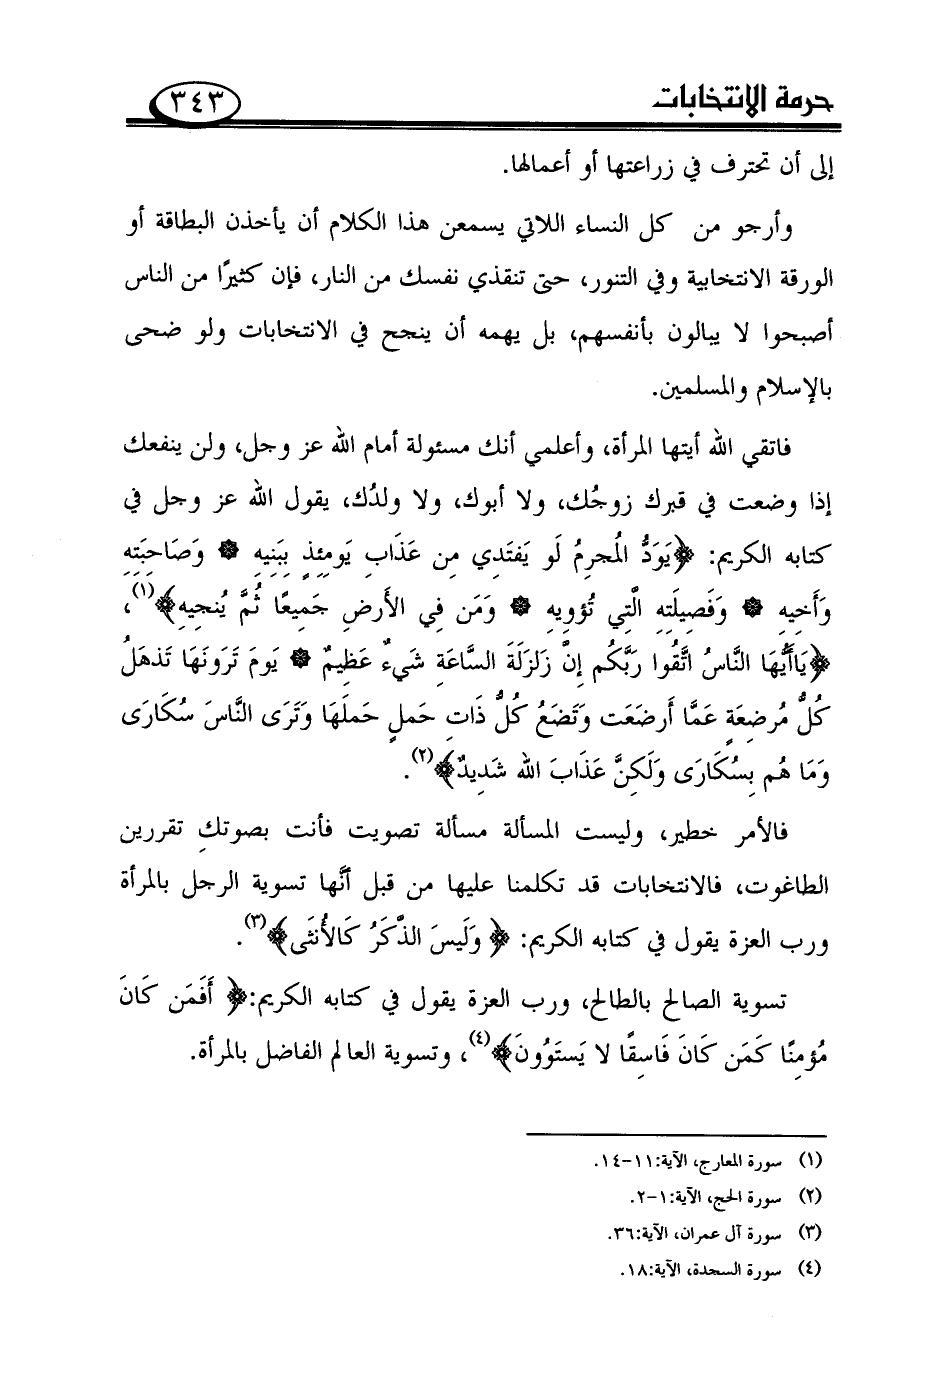 حرمة الانتخابات
٣٤٣
إلى أن تحترف في زراعتها أو أعمالها.
وأرجو من كل النساء اللاتي يسمعن هذا الكلام أن يأخذن البطاقة أو
الورقة الانتخابية وفي التنور، حتى تنقذي نفسك من النار، فإن كثيرًا من الناس
أصبحوا لا يبالون بأنفسهم، بل يهمه أن ينجح في الانتخابات ولو ضحى
بالإسلام والمسلمين.
فاتقي الله أيتها المرأة، وأعلمي أنك مسئولة أمام الله عز وجل، ولن ينفعك
إذا وضعت في قبرك زوجُك، ولا أبوك، ولا ولدُك، يقول الله عز وجل في
كتابه الكريم: ﴿يَوَدُّ المُجرِمُ لَو يَفتَدِي مِن عَذَابِ يَومِئِذٍ بِبَنِيهِ * وَصَاحِبَتِهِ
وَأَخِيهِ * وَفَصِيلَتِهِ الَّتِي تُؤوِيهِ * وَمَن فِي الأَرضِ جَمِيعًا ثُمَّ يُنجِيهِ﴾(١)،
﴿يَاأَيُّهَا النَّاسُ اتَّقُوا رَبَّكُم إِنَّ زَلزَلَةَ السَّاعَةِ شَيءٌ عَظِيمٌ * يَومَ تَرَونَهَا تَذهَلُ
كُلُّ مُرضِعَةٍ عَمَّا أَرضَعَت وَتَضَعُ كُلُّ ذَاتِ حَملٍ حَملَهَا وَتَرَى النَّاسَ سُكَارَى
وَمَا هُم بِسُكَارَى وَلَكِنَّ عَذَابَ الله شَدِيدٌ﴾(٢).
فالأمر خطير، وليست المسألة مسألة تصويت فأنت بصوتكِ تقررين
الطاغوت، فالانتخابات قد تكلمنا عليها من قبل أنَّها تسوية الرجل بالمرأة
ورب العزة يقول في كتابه الكريم: ﴿وَلَيسَ الذَّكَرُ كَالأُنثَى﴾(٣).
تسوية الصالح بالطالح، ورب العزة يقول في كتابه الكريم:﴿أَفَمَن كَانَ
مُؤمِنًا كَمَن كَانَ فَاسِقًا لا يَستَوُونَ﴾(٤)، وتسوية العالم الفاضل بالمرأة.
(١) سورة المعارج، الآية:١١-١٤.
(٢) سورة الحج، الآية:١-٢.
(٣) سورة آل عمران، الآية:٣٦.
(٤) سورة السجدة، الآية:١٨.